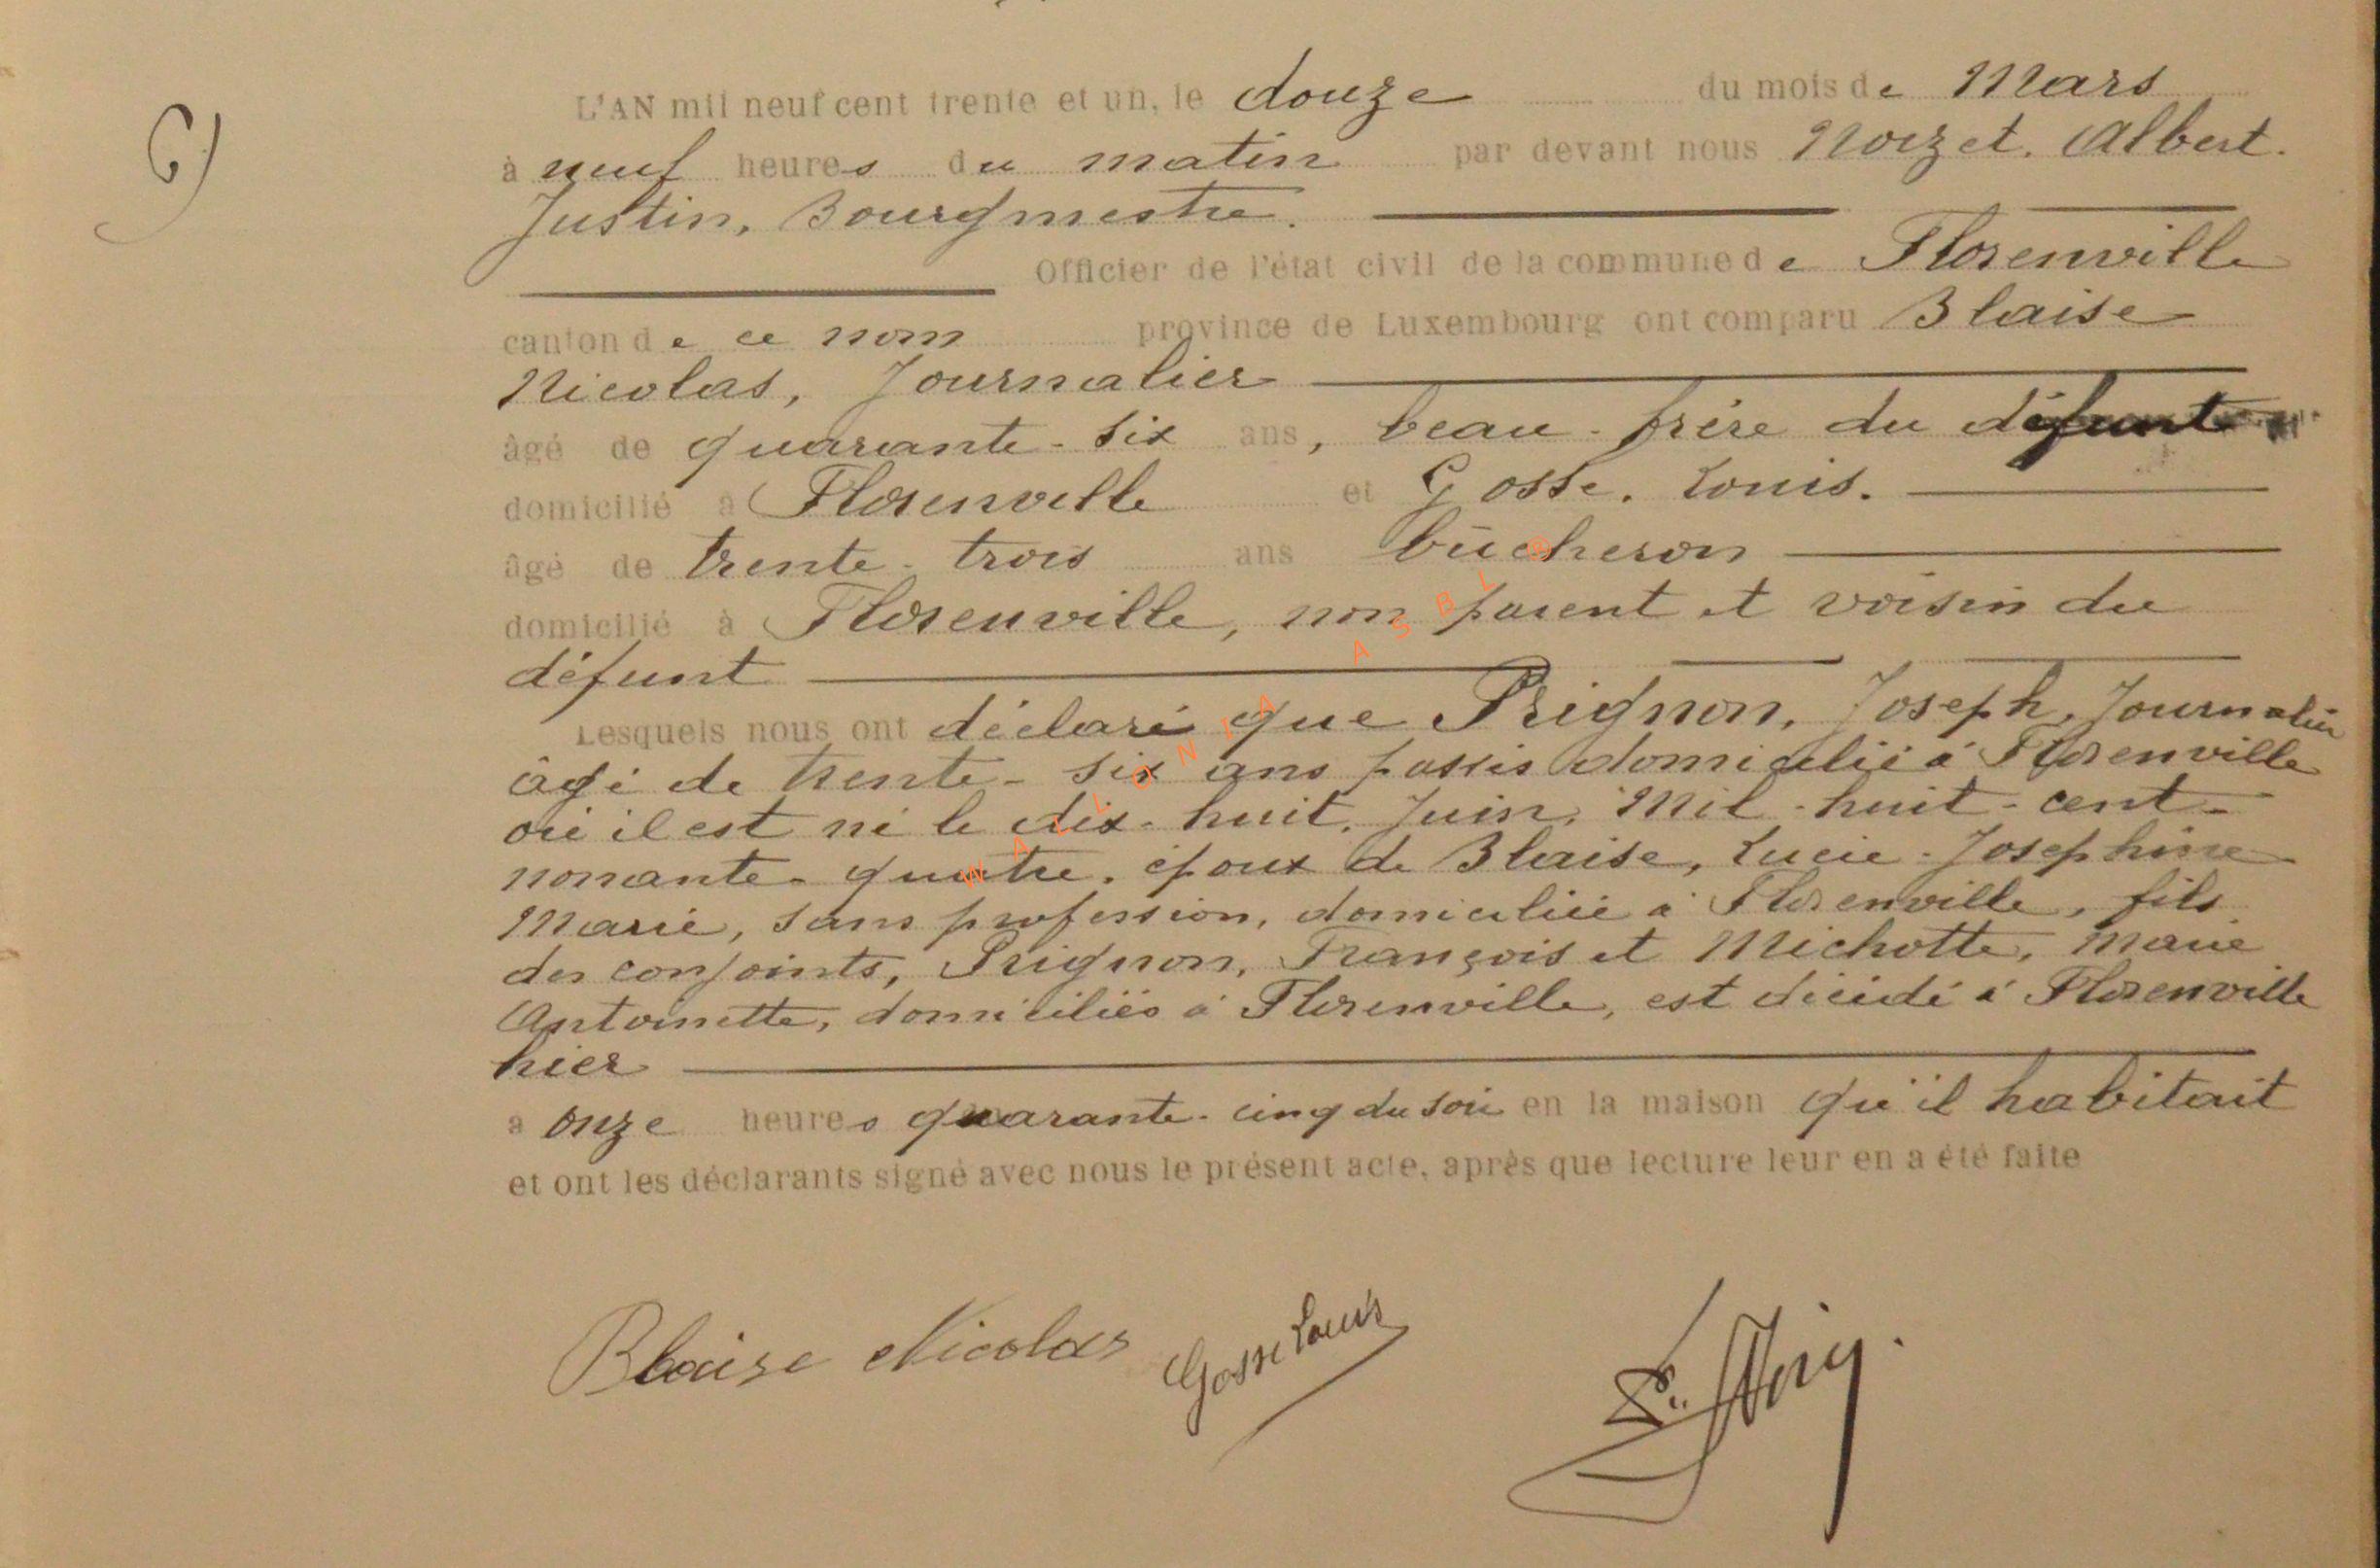 6)
L'AN mil neuf cent trente et un, le douze du mois de Mars
à neuf heures du matin par devant nous Noizet. Albert.
Justin, Bourgmestre.
Officier de l'état civil de la commune de Florenville
canton de ce nom province de Luxembourg ont comparu Blaise
Nicolas, Journalier
âgé de quarante-six ans, beau-frère du défunt
domicilié à Florenville et Gosse. Louis.
âgé de trente-trois ans bûcheron
domicilié à Florenville, non parent et voisin du
défunt
Lesquels nous ont déclaré que Prignon, Joseph, Journalier
âgé de trente-six ans passés domicilié à Florenville
où il est né le dix-huit, Juin, Mil-huit-cent-
nonante-quatre, époux de Blaise, Lucie-Josephine
Marie, sans profession, domiciliée à Florenville, fils
des conjoints, Prignon, François et Michotte, Marie
Antoinette, domiciliés à Florenville, est décédé à Florenville
hier
à onze heures quarante-cinq du soir en la maison qu'il habitait
et ont les déclarants signé avec nous le présent acte, après que lecture leur en a été faite
Blaise Nicolas Gosse Louis
WALLONIA ASBL ©